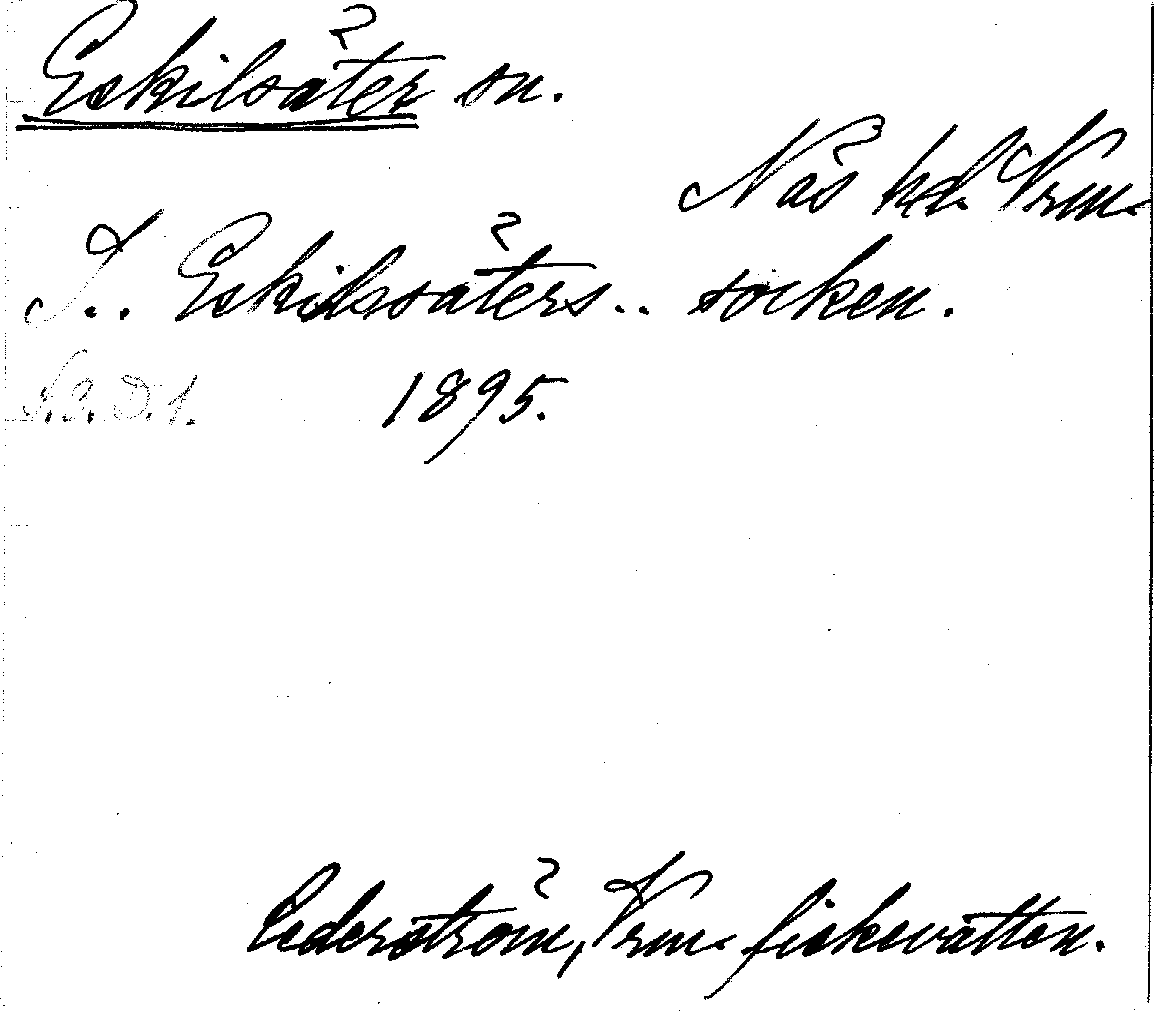 Eskilsäter sn.
Näs hd. Vrm.
I.. Eskilssäters.. socken.
1895.
Cederström, Vrm. fiskevatten.